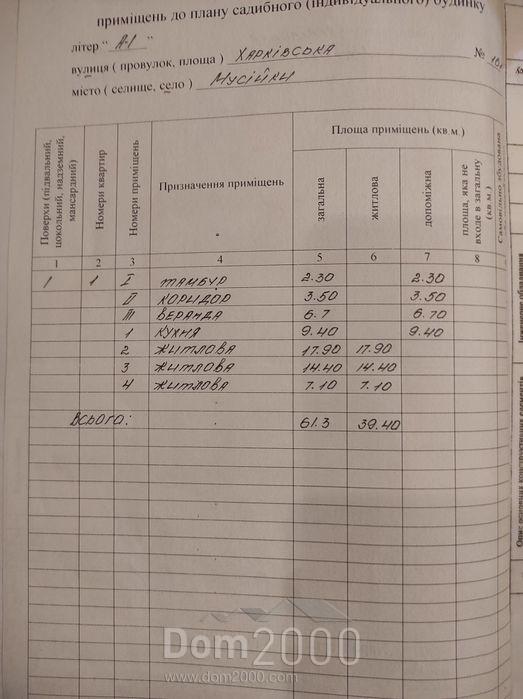 приміщень до плану садибного (індивідуального) будинку
літер “ А-I ”
вулиця ( провулок, площа ) ХАРКІВСЬКА № 101
місто ( селище, село ) МУСІЙКИ
Поверхи (підвальний, цокольний, надземний, мансардний) Номери квартир Номери приміщень Призначення приміщень Площа приміщень (кв.м.)
загальна житлова допоміжна площа, яка не входе в загальну (кв.м.) Самовільно збудована
1 2 3 4 5 6 7 8
1 1 I ТАМБУР 2.30 2.30
II КОРИДОР 3.50 3.50
III ВЕРАНДА 6.7 6.70
1 КУХНЯ 9.40 9.40
2 ЖИТЛОВА 17.90 17.90
3 ЖИТЛОВА 14.40 14.40
4 ЖИТЛОВА 7.10 7.10
ВСЬОГО: 61.3 39.40
Dom2000
www.dom2000.com